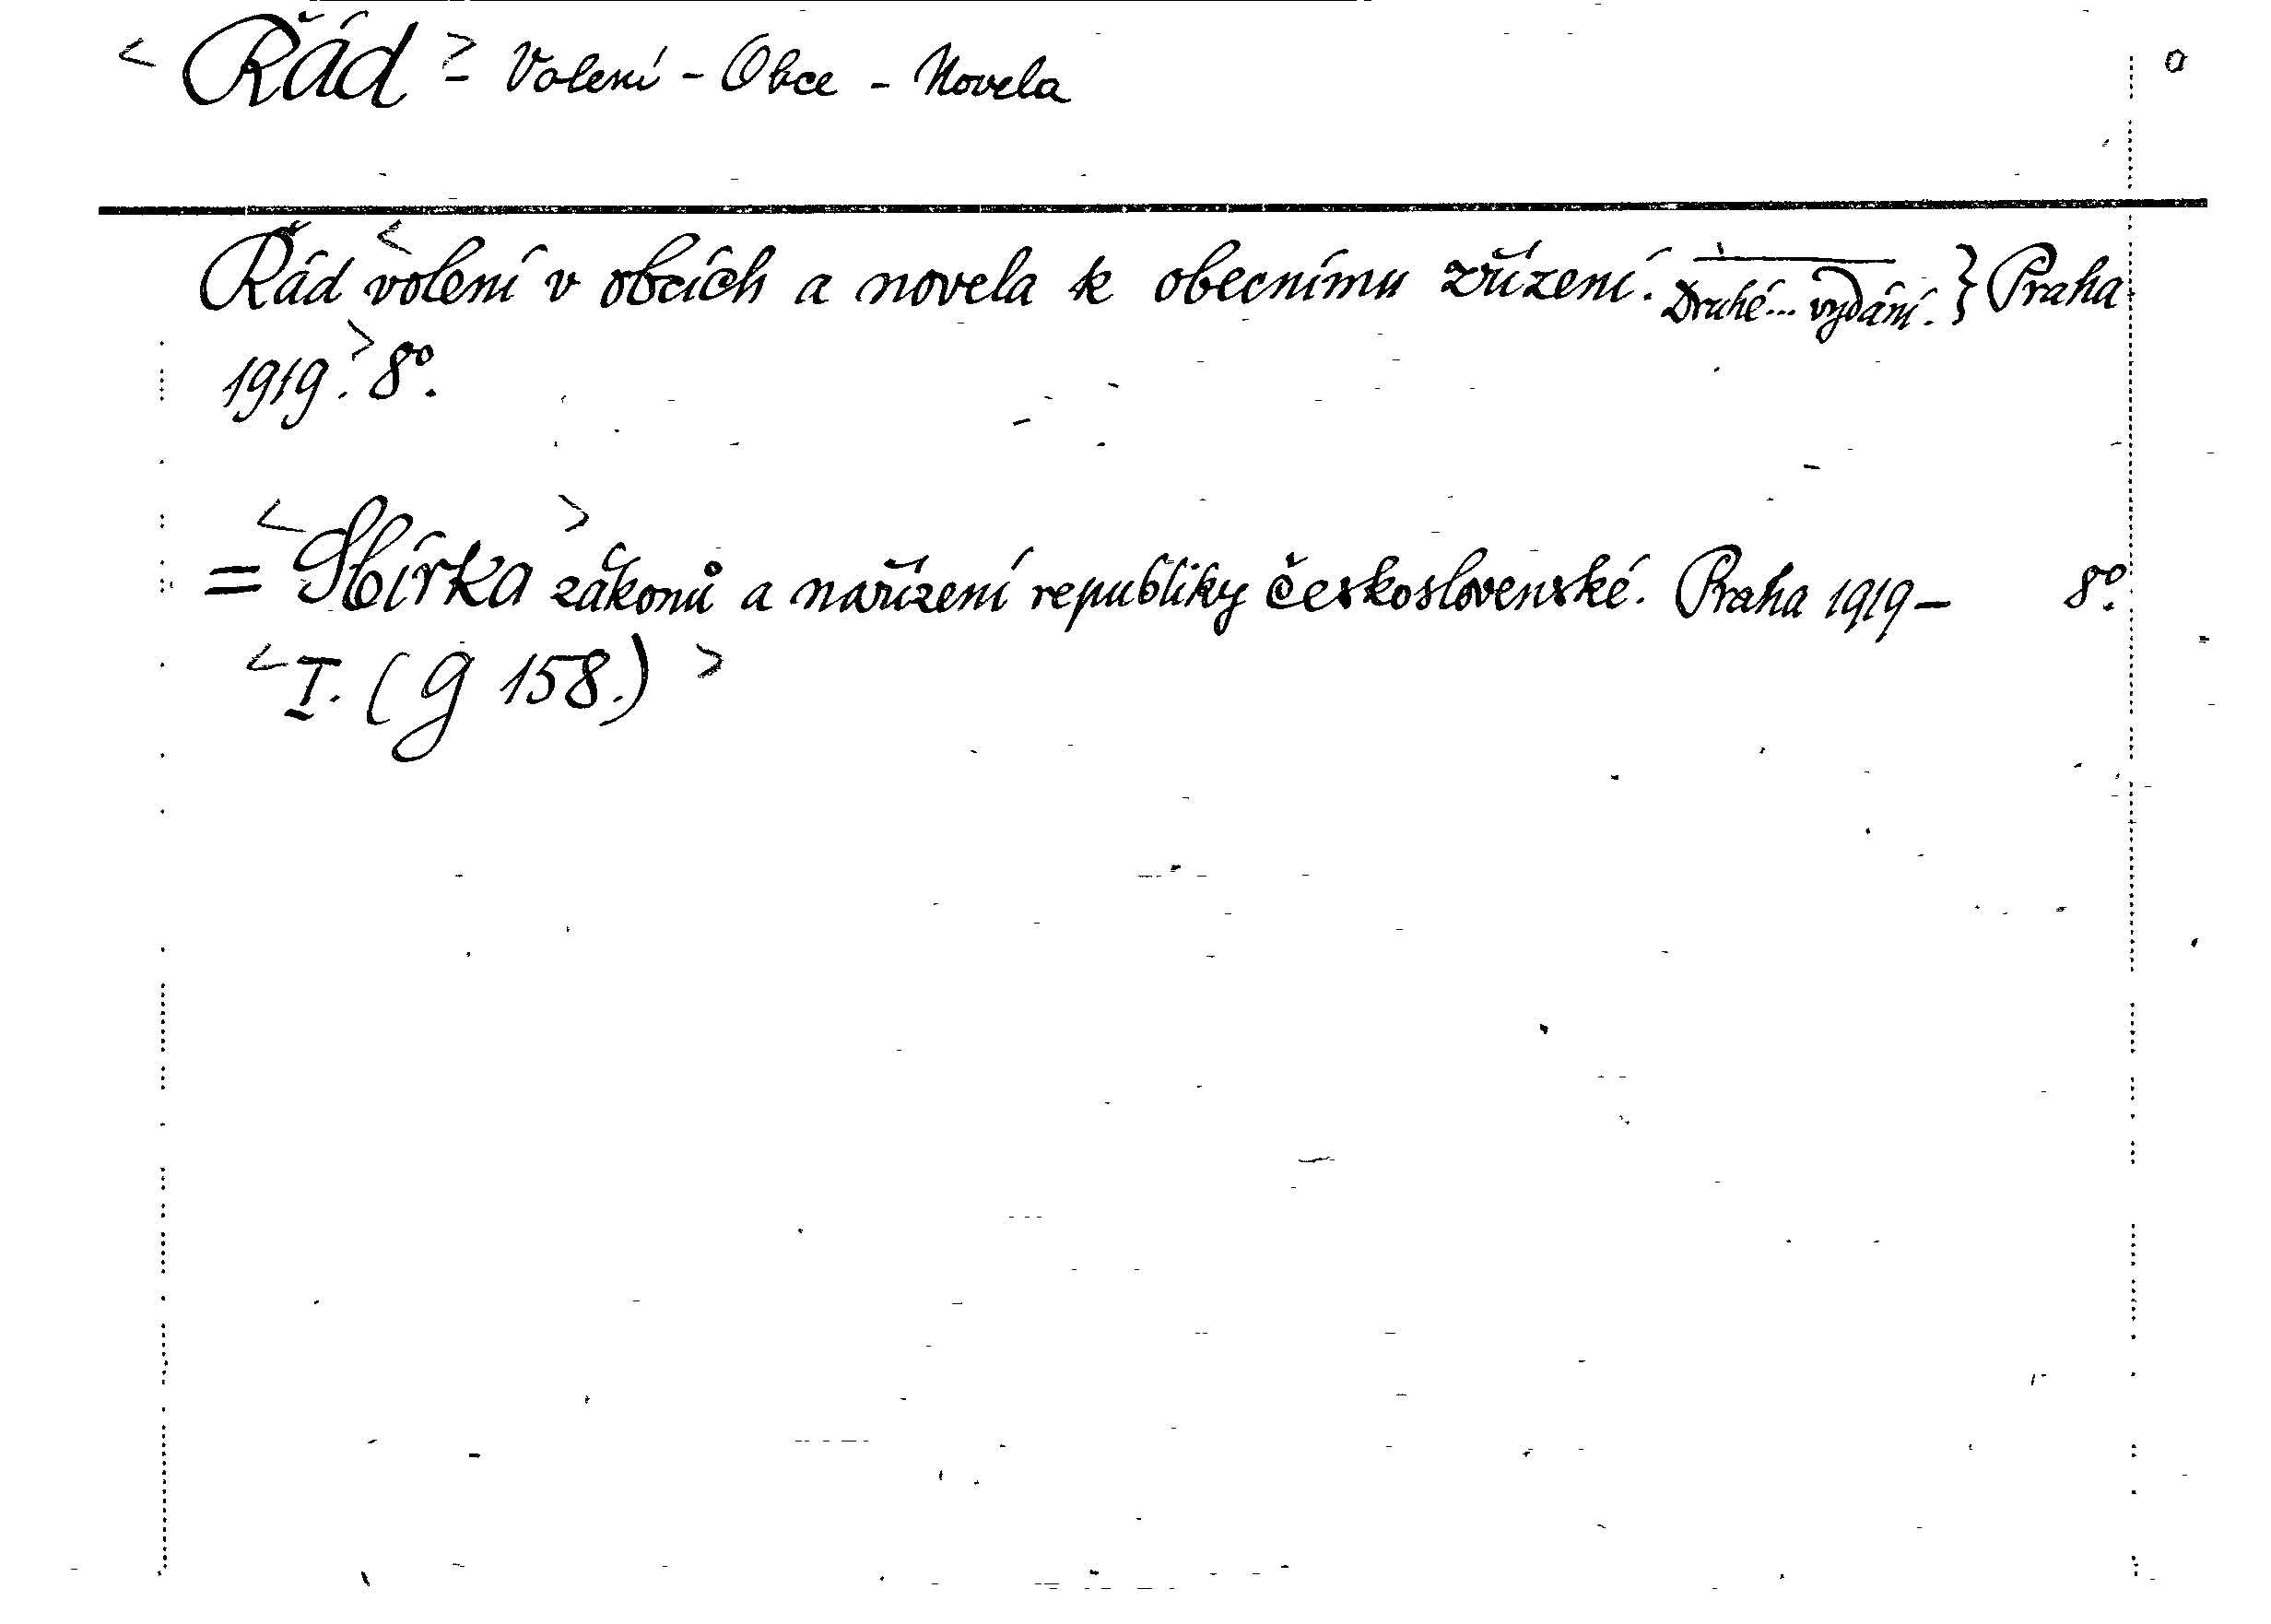 < Řád > - Volení - Obce - Novela o
Řád < volení v obcích a novela k obecnímu zřízení. Druhé... vydání. } Praha
1919. > 8º.
= < Sbírka > zákonů a nařízení republiky československé. Praha 1919 - 8º.
< I. (G 158.) >